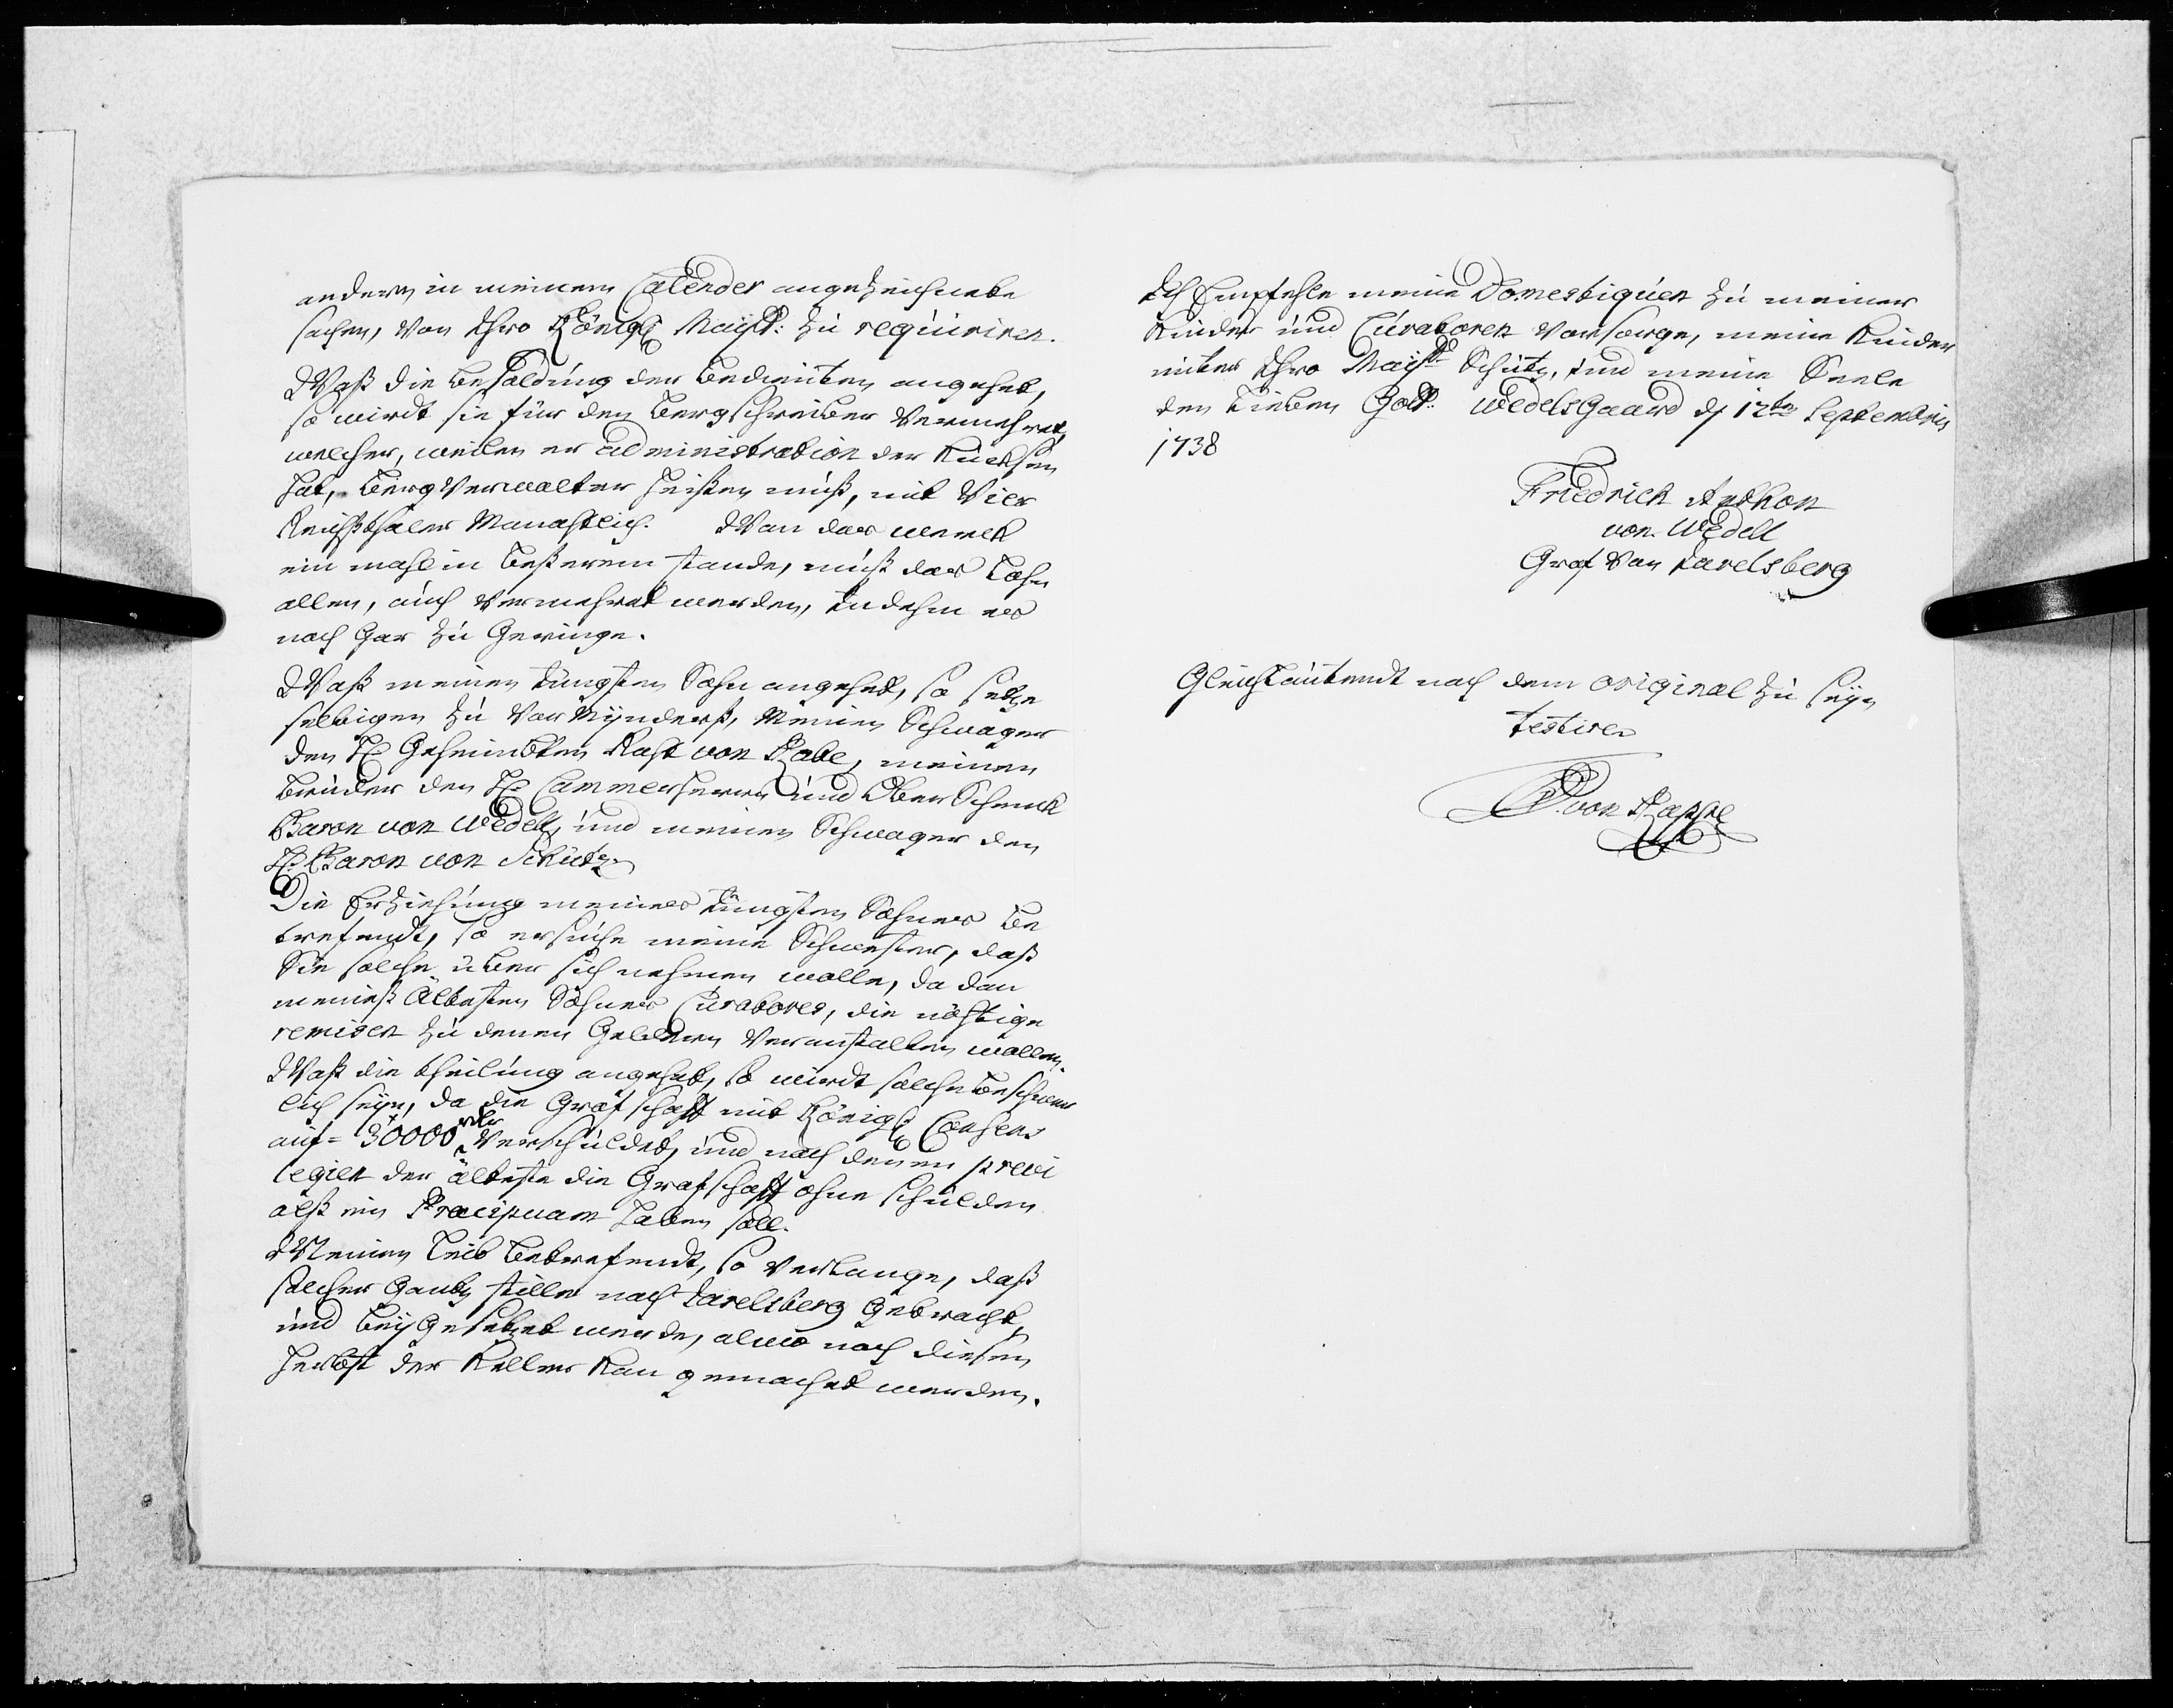 andern in meinem Calender angezeichnete
sachen, von Ihro Königl Mayst: zu requiriren.
Waß die besoldung der bedienten angehet,
so wirdt sie für den Bergschreiber vermehret,
welcher, weilen er administration der
hat, Bergverwalter heißen muß, mit vier
Reichsthaler Monahtlich. Wan das werck
ein mahl in besserem stande, muß das Lohn
allen, auch vermehret werden, indehm es
noch gar zu geringe.
Waß meinen Jüngsten Sohn angehet, so setze
selbigen zu vor Mynderß, Meinen Schwager
den H Geheimbten Raht von Rabe, meinen
bruder den H: Cammerherrn und Ober Schenck
Baron von Wedell, und meinen Schwager den
H: Baron von Schütz
Die Erziehung meines Jüngsten Sohnes be
trefendt, so ersuche meine Schwester, daß
Sie solche über sich nehmen wolle, da dan
meineß Ältesten Sohnes Curatores, die nöhtige
remisen zu denen Geldern veranstalten wollen.
Waß die theilung angehet, so wirdt solche beschwer
lich seyn, da die Grafschafft mit Königl Consens
auf = 30000 rdlr verschuldet, und nach denen previ
legien der älteste die Grafschafft ohne schulden
alß ein Præcipuum haben soll.
Meinen Leib betrefendt, so verlange, daß
solcher gantz stille nach Jarelsberg gebracht,
und beygesetzet werde, alwo noch diesen
herbst der Keller kan gemachet werden.
Ich Empfehle meine Domestiquen zu meiner
Kinder und Curatoren vorsorge, meine Kinder
unter Ihro Mayst Schutz, und meine Seele
den Lieben Gott. Wedelsgaard d 12ten Septembris
1738
Friedrich Anthon
von Wedell
Graf von Jarelsberg
Gleichlautendt nach dem original zu seyn
testire
P. von Kappel